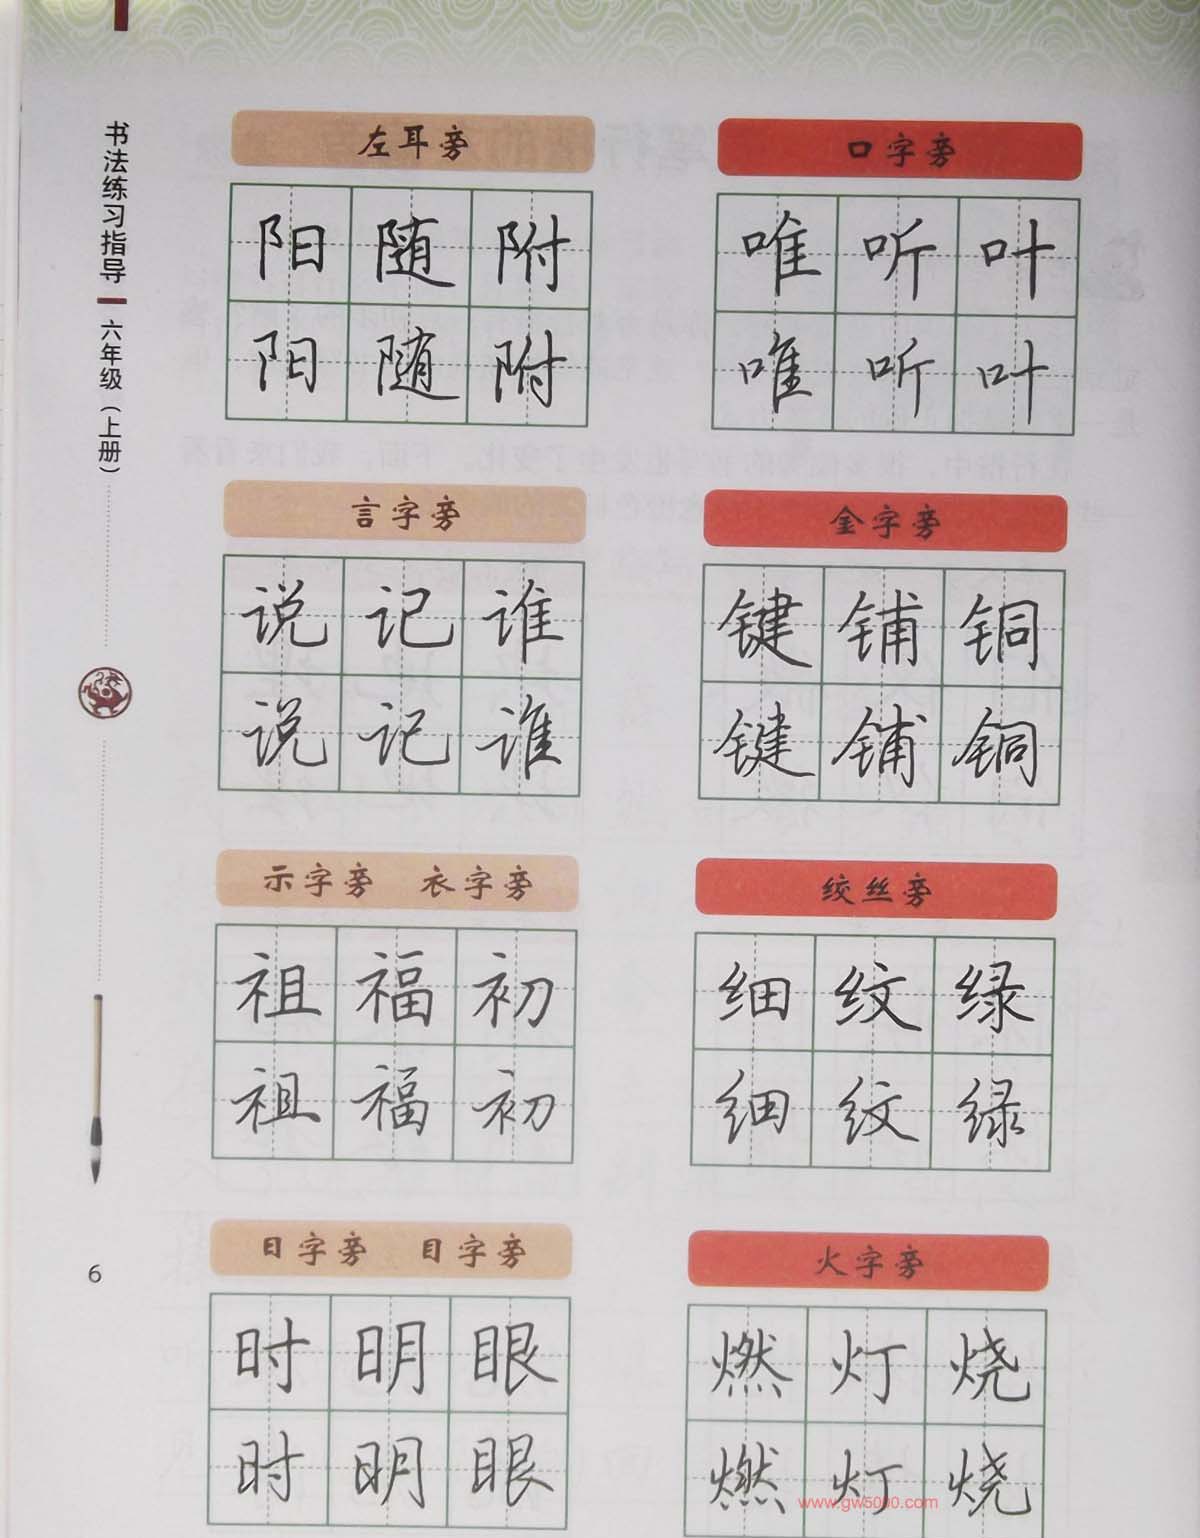 书法练习指导
六年级（上册）
左耳旁
阳 随 附
阳 随 附
口字旁
唯 听 叶
唯 听 叶
言字旁
说 记 谁
说 记 谁
金字旁
键 铺 铜
键 铺 铜
示字旁 衣字旁
祖 福 初
祖 福 初
绞丝旁
细 纹 绿
细 纹 绿
日字旁 目字旁
时 明 眼
时 明 眼
火字旁
燃 灯 烧
燃 灯 烧
6
www.gw5000.com